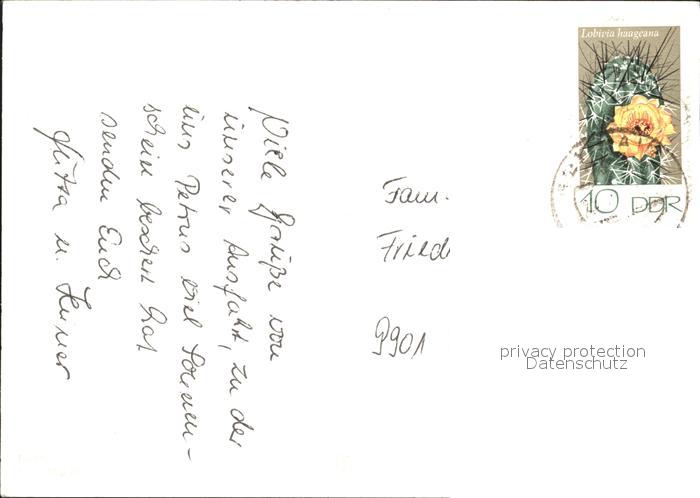 Viele Grüße von
unserer Ausfahrt, zu der
uns Petrus viel Sonnen-
schein beschert hat
senden Euch
Jutta u. Heiner
Fam.
Fried
9901
Lobivia haageana
10 DDR
privacy protection
Datenschutz